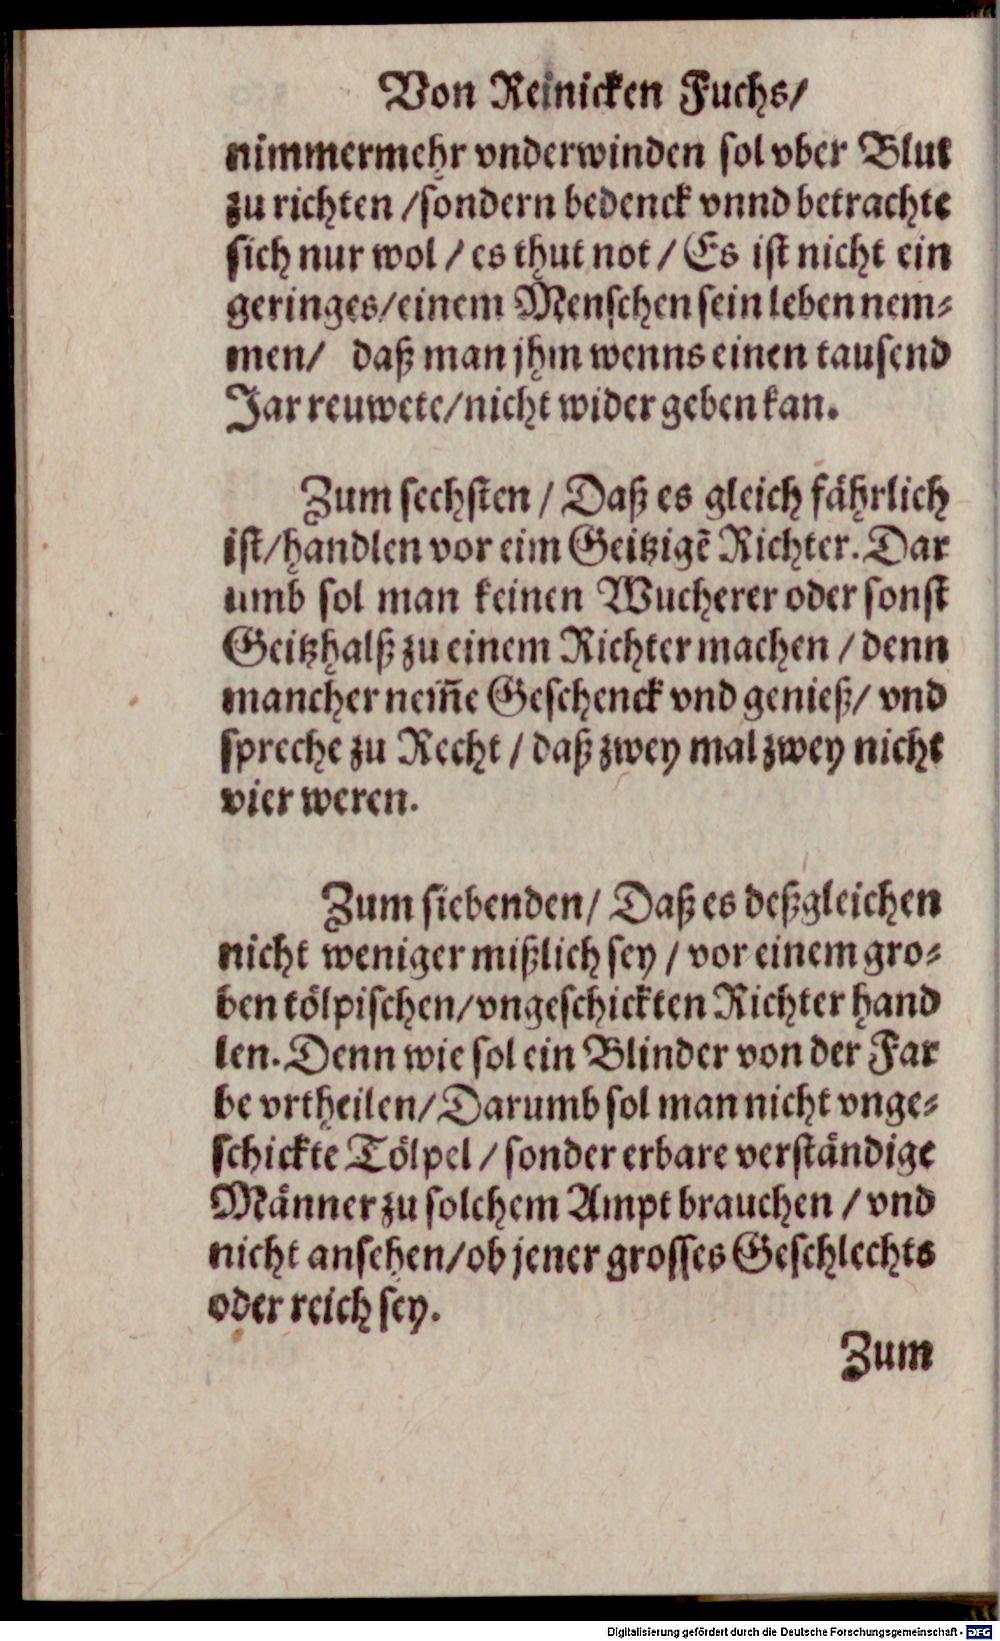 Von Reinicken Fuchs/
nimmermehr vnderwinden sol vber Blut
zu richten /sondern bedenck vnnd betrachte
sich nur wol / es thut not / Es ist nicht ein
geringes/einem Menschen sein leben nem⸗
men/ daß man jhm wenns einen tausend
Jar reuwete/nicht wider geben kan.
Zum sechsten / Daß es gleich fährlich
ist/handlen vor eim Geitzigẽ Richter. Dar
umb sol man keinen Wucherer oder sonst
Geitzhalß zu einem Richter machen / denn
mancher nem̃e Geschenck vnd genieß/ vnd
spreche zu Recht / daß zwey mal zwey nicht
vier weren.
Zum siebenden/ Daß es deßgleichen
nicht weniger mißlich sey / vor einem gro⸗
ben tölpischen/vngeschickten Richter hand
len. Denn wie sol ein Blinder von der Far
be vrtheilen/Darumb sol man nicht vnge⸗
schickte Tölpel / sonder erbare verständige
Männer zu solchem Ampt brauchen / vnd
nicht ansehen/ob jener grosses Geschlechts
oder reich sey.
Zum
Digitalisierung gefördert durch die Deutsche Forschungsgemeinschaft - DFG